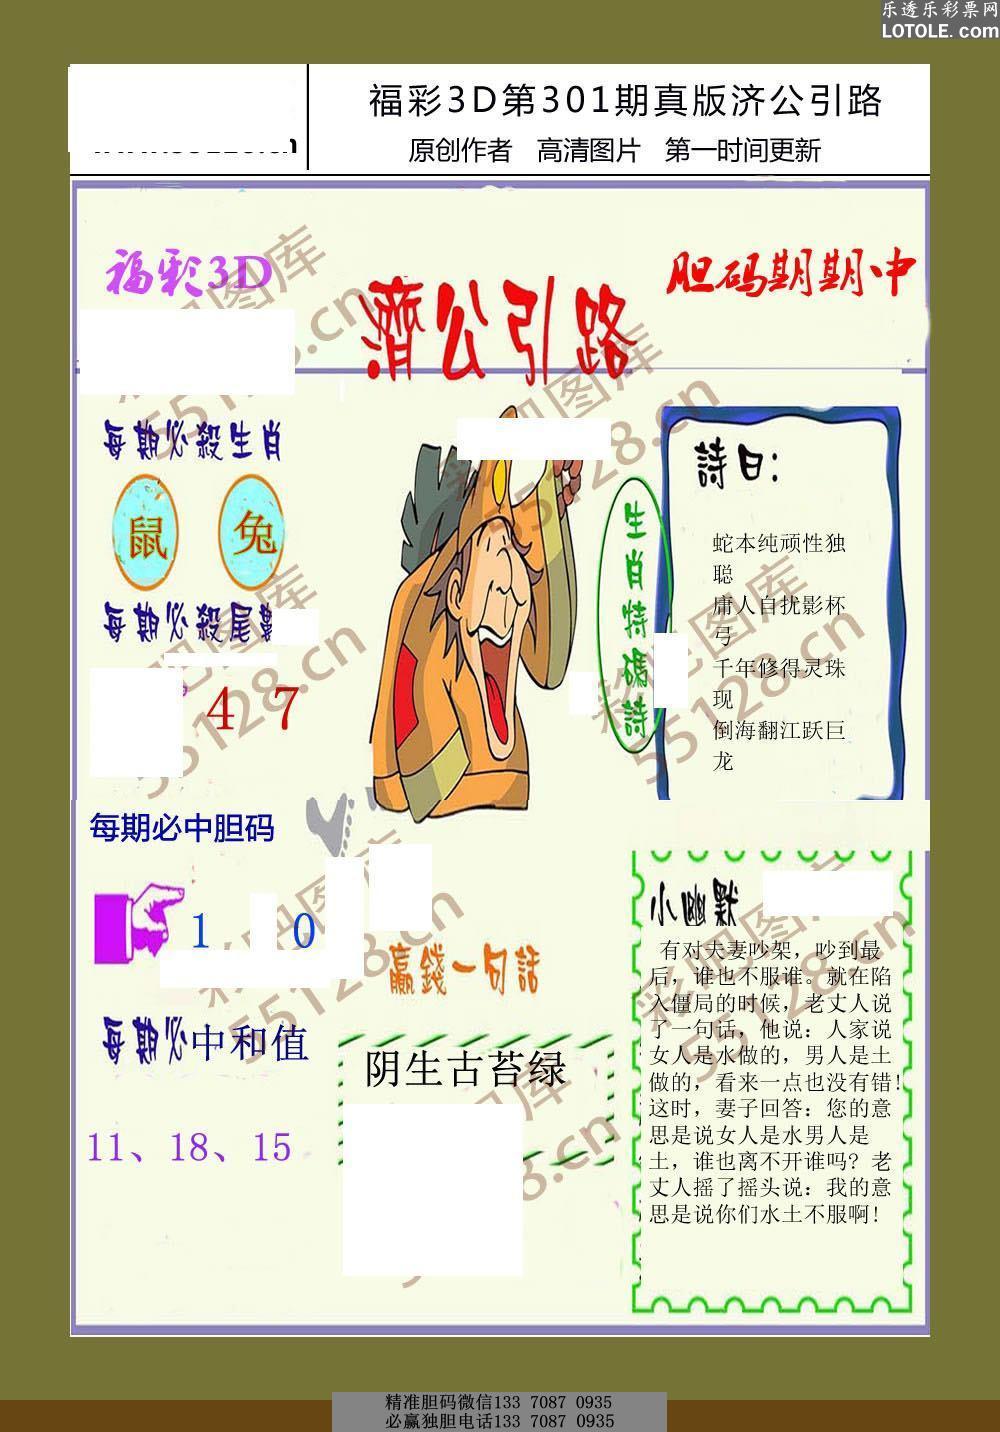 乐透乐彩票网
LOTOLE.com
福彩3D第301期真版济公引路
原创作者 高清图片 第一时间更新
福彩3D
胆码期期中
濟公引路
每期必殺生肖
鼠 兔
每期必殺尾
4 7
每期必中胆码
1 0
每期必中和值
11、18、15
生肖特碼詩
詩曰：
蛇本纯顽性独
聪
庸人自扰影杯
弓
千年修得灵珠
现
倒海翻江跃巨
龙
赢錢一句話
阴生古苔绿
小幽默
有对夫妻吵架，吵到最
后，谁也不服谁。就在陷
入僵局的时候，老丈人说
了一句话，他说：人家说
女人是水做的，男人是土
做的，看来一点也没有错！
这时，妻子回答：您的意
思是说女人是水男人是
土，谁也离不开谁吗？老
丈人摇了摇头说：我的意
思是说你们水土不服啊!
彩吧图库
55128.cn
精准胆码微信133 7087 0935
必赢独胆电话133 7087 0935